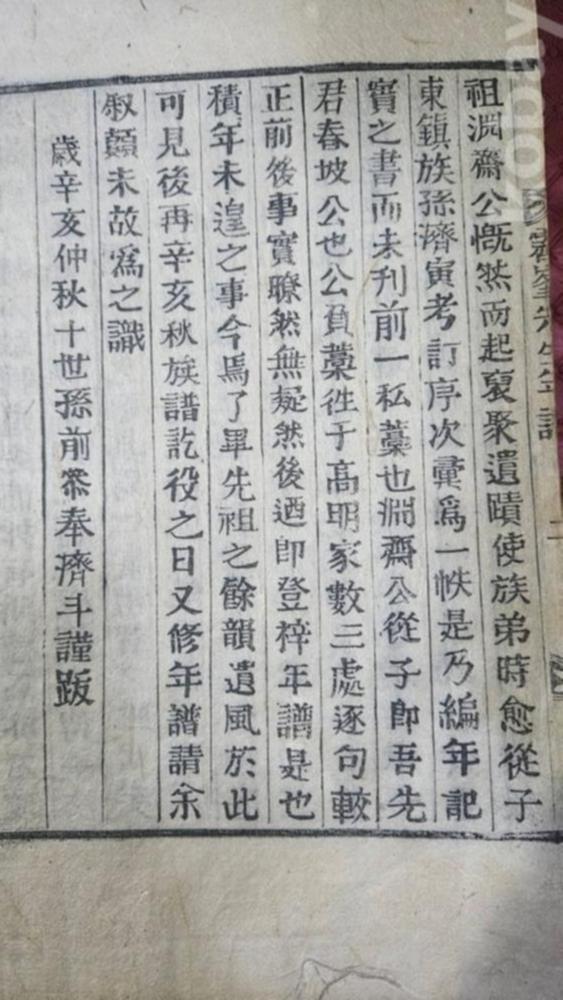 祖淵齋公慨然而起裒聚遺蹟使族弟時愈從子
東鎭族孫濟寅考訂序次彙爲一帙是乃編年記
實之書而未刊前一私藁也淵齋公從子卽吾先
君春坡公也公負藁徃于高明家數三處逐句較
正前後事實暸然無疑然後迺卽登梓年譜是也
積年未遑之事今焉了畢先祖之餘韻遺風於此
可見後再辛亥秋族譜訖役之日又修年譜請余
叙顚末故爲之識
歲辛亥仲秋十世孫前參奉濟斗謹跋
先生年譜
二